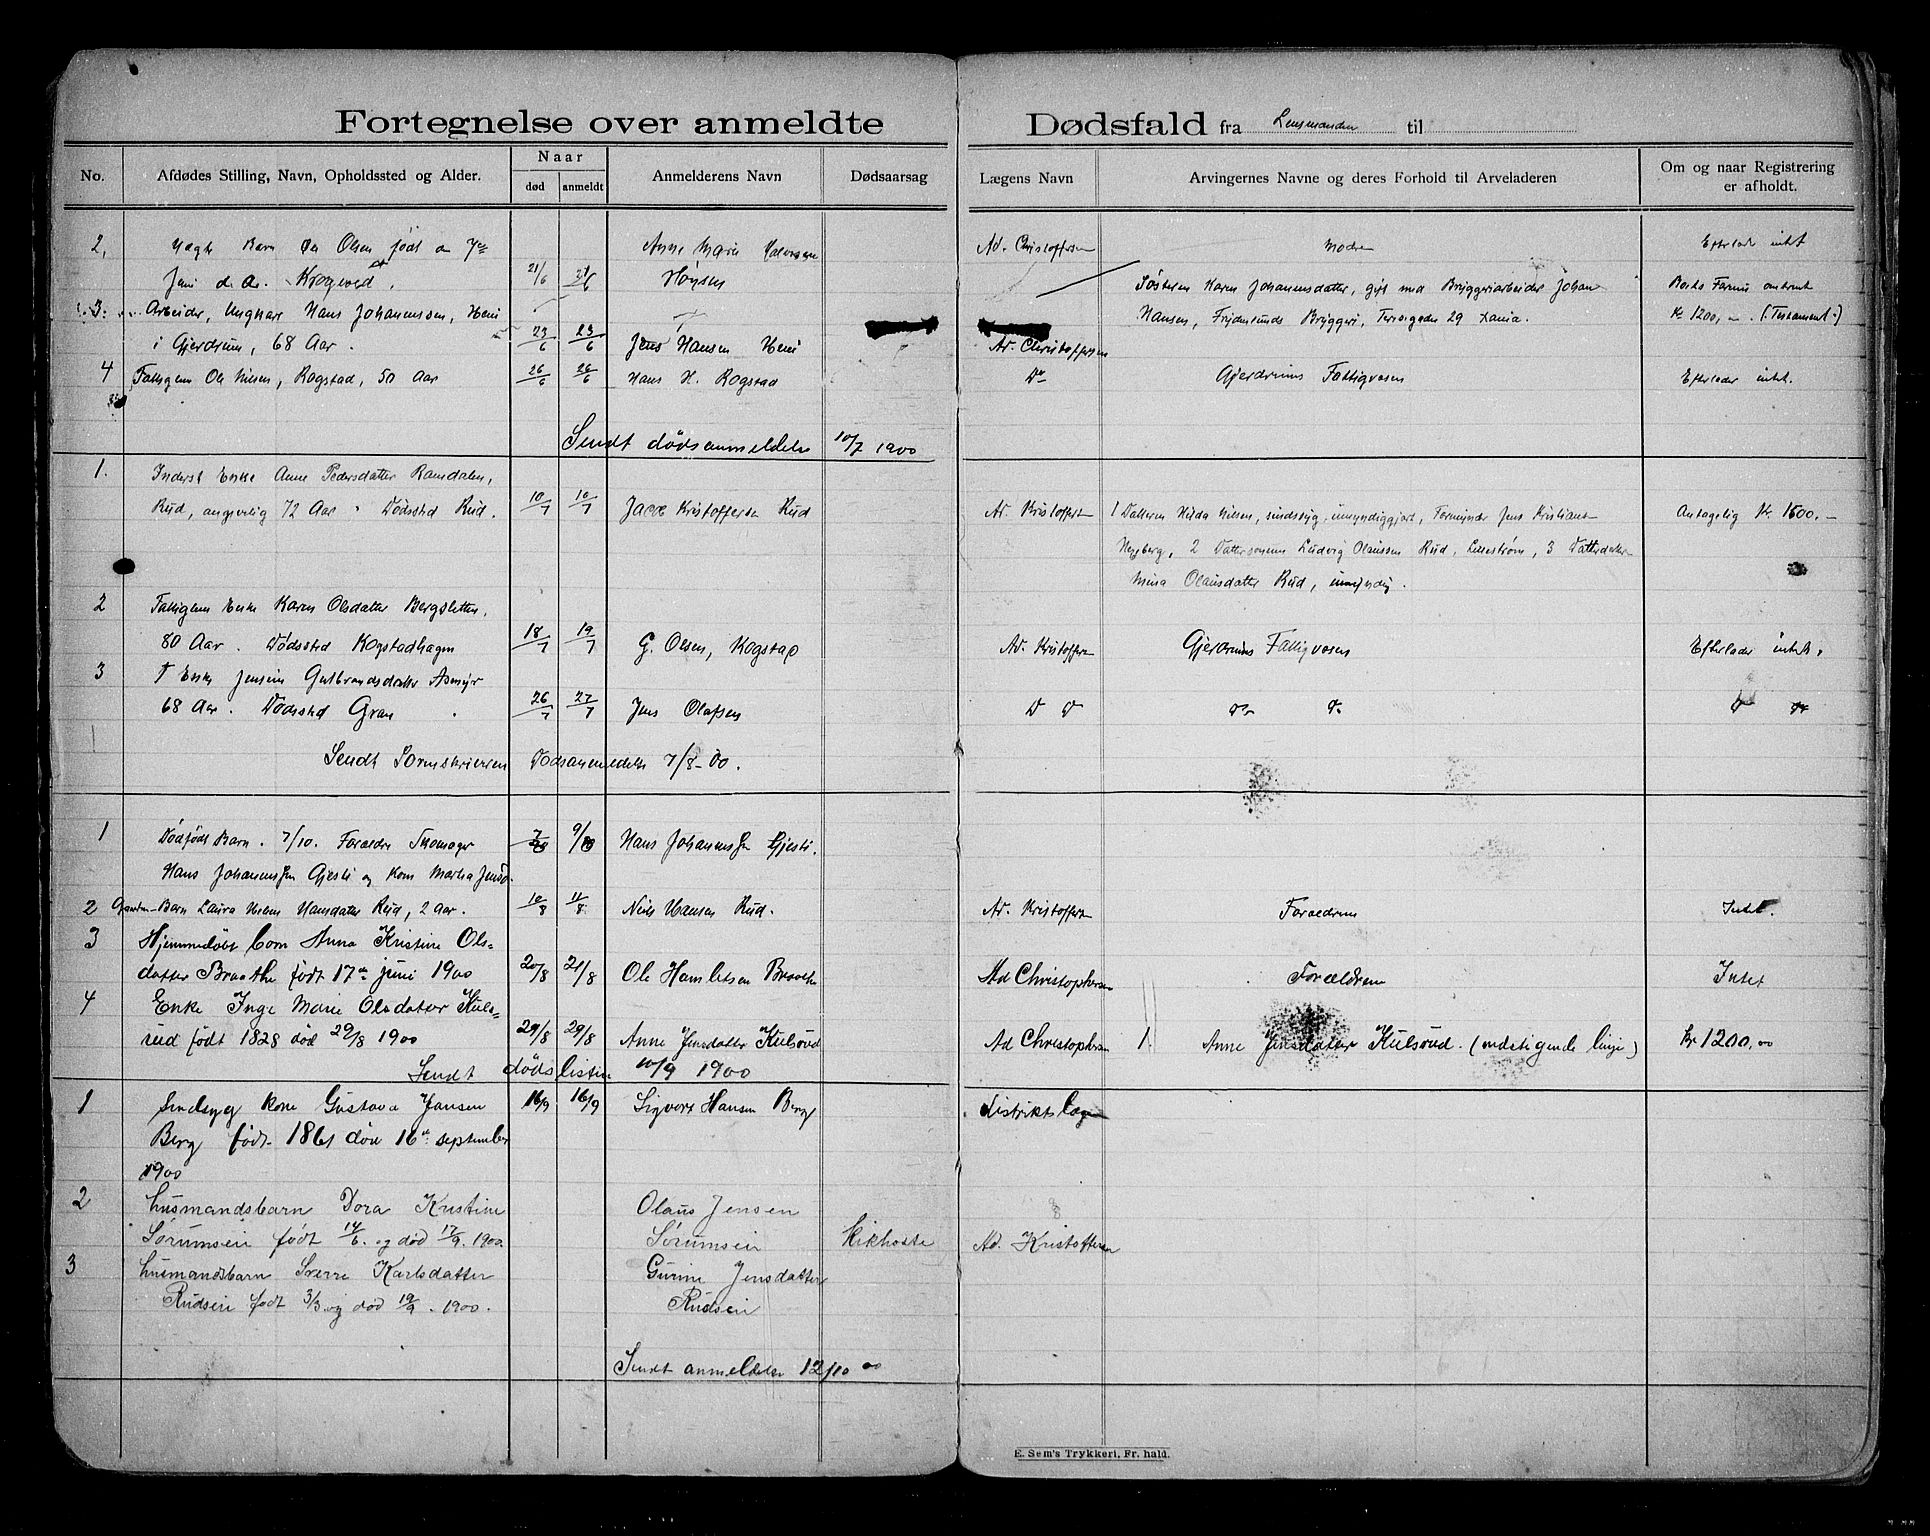 Fortegnelse over anmeldte Dødsfald fra Lensmanden til
No. Afdødes Stilling, Navn, Opholdssted og Alder. Naar død anmeldt Anmelderens Navn Dødsaarsag Lægens Navn Arvingernes Navne og deres Forhold til Arveladeren Om og naar Registrering er afholdt.
2, Barn Olsen født 7de Anne Marie Ad. Christoffersen Modren Efterlod intet
Juni d. A. Krogsved. 21/6 Høysen
Søsteren Karen Johannesdatter, gift med Bryggeriarbeider Johan
3. Arbeider, Ungkare Hans Johannessen, Heni Hansen, Frydenlunds Bryggeri, 29 Xania. Kr 1200, - . (Testament.)
i Gjerdrum, 68 Aar. 23/6 23/6 Jens Hansen Heni Ad. Christoffersen
4 Fattiglem Ole Nilsen, Rogstad, 50 Aar 26/6 26/6 Hans H. Rogstad Do Gjerdrums Fattigvæsen Efterlader intet.
Sendt dødsanmeldelse 10/7 1900
1. Inderst Enke Anne Pedersdatter Ramdalen,
Rud, angivelig 72 Aar. Dødssted Rud. 10/7 10/7 Jacob Kristoffersen Rud Ad. Kristoffersen 1 Datteren Hilda Nilsen, sindssyg, umyndiggjort, Formynder Jens Kristiansen Antagelig Kr. 1600.-
2 Dattersønnen Ludvig Olaussen Rud, Lillestrøm, 3 Datterdatter
Mina Olausdatter Rud, umyndig.
2 Fattiglem Enke Karen Olsdatter Bergsletten,
80 Aar. Dødssted Rogstadhagen 18/7 19/7 G. Olsen, Rogstad Ad. Kristoffersen Gjerdrums Fattigvæsen Efterlader intet.
3 Enke Jensine Gulbrandsdatter Asmyr
68 Aar. Dødssted Gran 26/7 27/7 Jens Olafsen D D Do Do D Do
Sendt Sorenskriveren Dødsanmeldelse 7/8-00.
1 Dødfødt Barn. 7/10. Forældre Skomager 9/8 Hans Johannessen Gjesti.
Hans Johannessen Gjesti og Kone Martha Jensd.
2 Barn Laura Helene Hansdatter Rud, 2 Aar. 10/8 11/8 Niels Hansen Rud. Ad. Kristoffersen Forældrene Intet.
3 Hjemmedøbt barn Anna Kristine Ols-
datter Braathe født 17de juni 1900 20/8 21/8 Ole Braathe Ad Christophersen Forældrene Intet
4 Enke Inge Marie Olsdatter Kuls=
rud født 1828 død 29/8 1900 29/8 29/8 Anne Jensdatter Kulsrud Ad Christophersen 1. Anne Jensdatter Kulsrud. (nedstigende linje) Kr 1200,00
Sendt dødslisten 10/9 1900
1 Sindsyg kone Gustava Jansen 16/9 16/9 Sigvart Hansen Berg distriktslægen
Berg født 1861 død 16de september
1900
2 husmandsbarn Dora Kristine Olaus Jensen
Sørumseie født 14/6. og død 17/9. 1900. Sørumseie Kikhoste Ad. Kristoffersen
3 husmandsbarn Sverre Karlsdatter Gurine Jensdatter
Rudseie født 3/3. og død 19/9. 1900. Rudseie
Sendt anmeldelse 12/10 00
E. Sem's Trykkeri, Fr. hald.